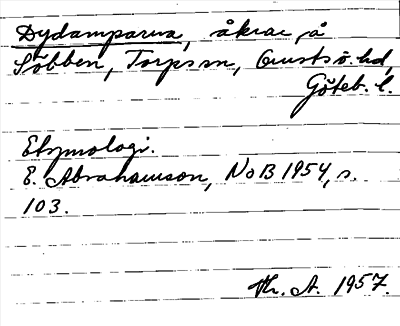 Dydamparna, åkrar å
Söbben, Torps sn, Orusts ö. hd,
Göteb. l.
Etymologi.
E. Abrahamson, NoB 1954, s.
103.
Th. A. 1957.